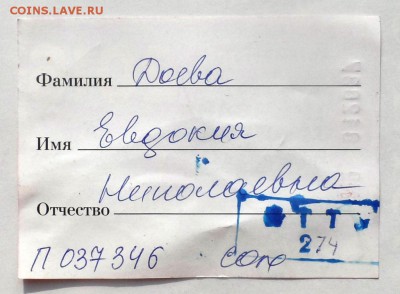 COINS.LAVE.RU
Фамилия Доева
Имя Евдокия
Николаевна
Отчество
ОТТУ
274
П 037346